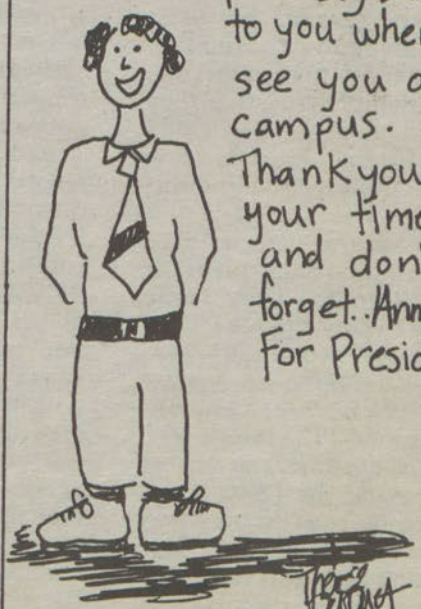 to you when
see you o
campus.
Thank you
your time
and don'
forget..Ann
For Presid